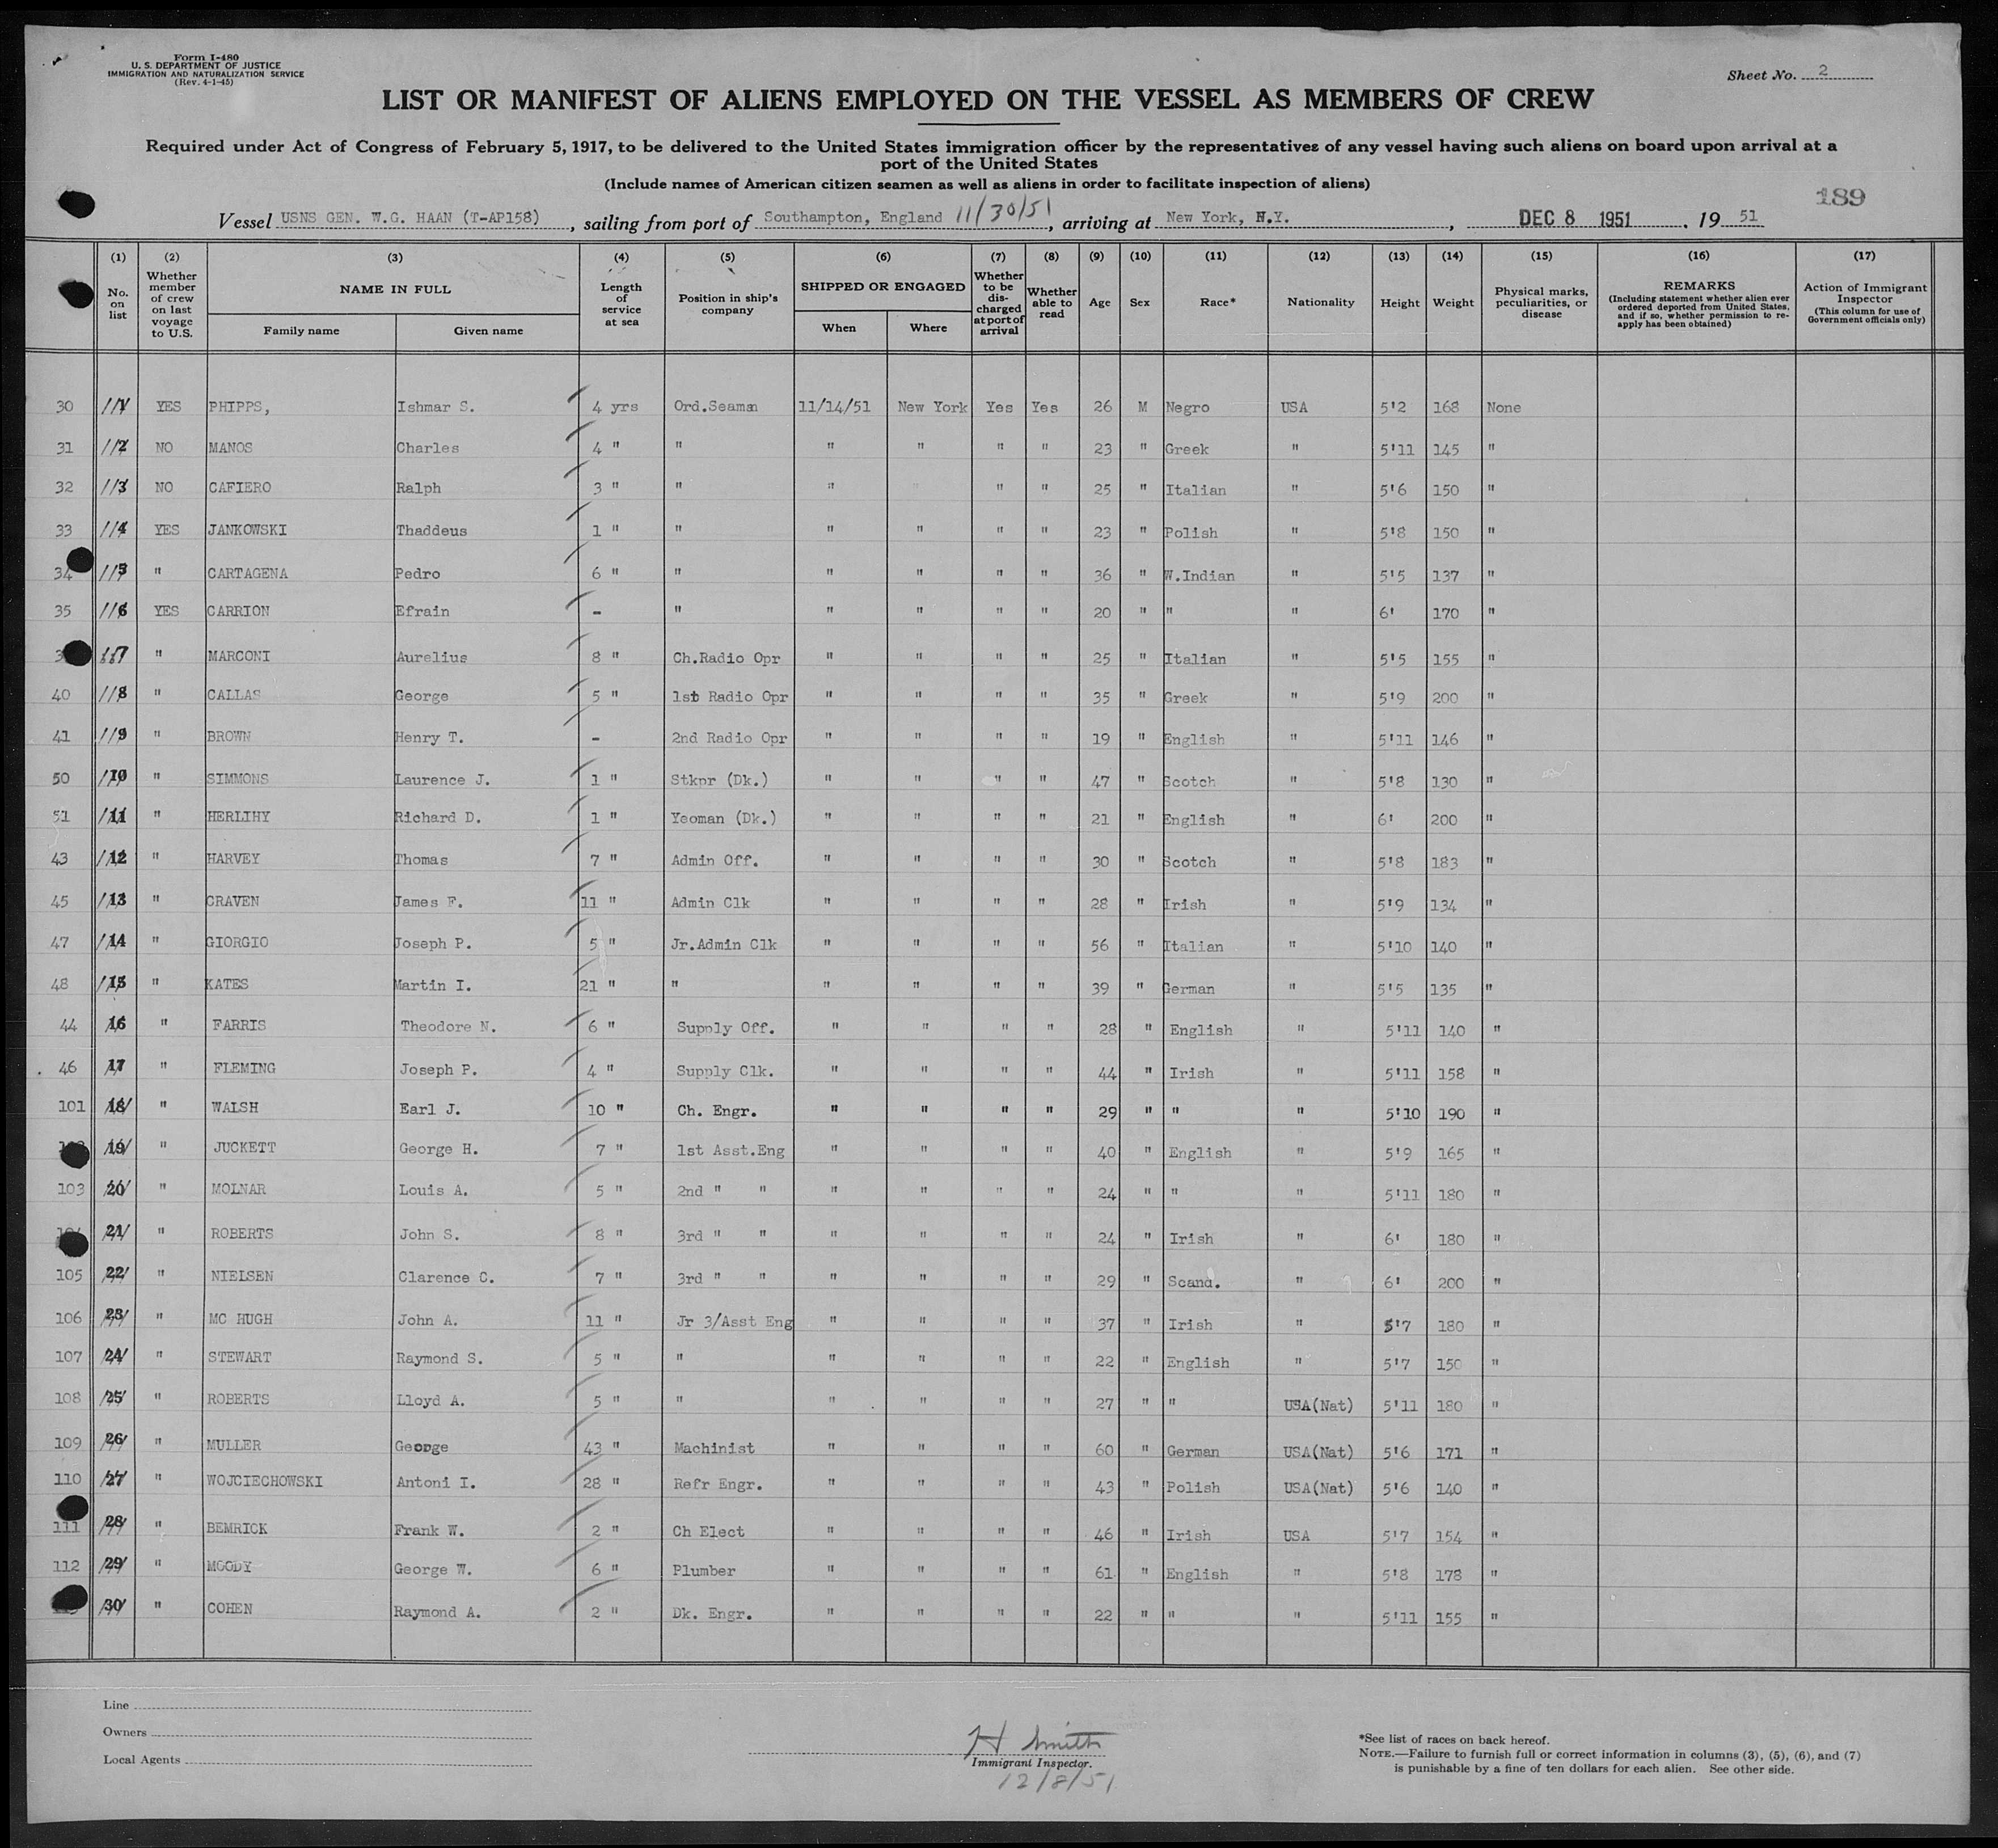 Form I-480
U. S. DEPARTMENT OF JUSTICE
IMMIGRATION AND NATURALIZATION SERVICE
(Rev. 4-1-45)
Sheet No. 2
LIST OR MANIFEST OF ALIENS EMPLOYED ON THE VESSEL AS MEMBERS OF CREW
Required under Act of Congress of February 5, 1917, to be delivered to the United States immigration officer by the representatives of any vessel having such aliens on board upon arrival at a
port of the United States
(Include names of American citizen seamen as well as aliens in order to facilitate inspection of aliens)
189
Vessel USNS GEN. W.G. HAAN (T-AP158), sailing from port of Southampton, England 11/30/51, arriving at New York, N.Y., DEC 8 1951, 19 51
(1) No. on list (2) Whether member of crew on last voyage to U.S. (3) NAME IN FULL Family name Given name (4) Length of service at sea (5) Position in ship's company (6) SHIPPED OR ENGAGED When Where (7) Whether to be discharged at port of arrival (8) Whether able to read (9) Age (10) Sex (11) Race* (12) Nationality (13) Height (14) Weight (15) Physical marks, peculiarities, or disease (16) REMARKS (Including statement whether alien ever ordered deported from United States, and if so, whether permission to re-apply has been obtained) (17) Action of Immigrant Inspector (This column for use of Government officials only)
30 1 YES PHIPPS, Ishmar S. 4 yrs Ord.Seaman 11/14/51 New York Yes Yes 26 M Negro USA 5'2 168 None
31 2 NO MANOS Charles 4 " " " " " " 23 " Greek " 5'11 145 "
32 3 NO CAFIERO Ralph 3 " " " " " " 25 " Italian " 5'6 150 "
33 4 YES JANKOWSKI Thaddeus 1 " " " " " " 23 " Polish " 5'8 150 "
34 5 " CARTAGENA Pedro 6 " " " " " " 36 " W.Indian " 5'5 137 "
35 6 YES CARRION Efrain - " " " " " 20 " " " 6' 170 "
7 " MARCONI Aurelius 8 " Ch.Radio Opr " " " " 25 " Italian " 5'5 155 "
40 8 " CALLAS George 5 " 1st Radio Opr " " " " 35 " Greek " 5'9 200 "
41 9 " BROWN Henry T. - 2nd Radio Opr " " " " 19 " English " 5'11 146 "
50 10 " SIMMONS Laurence J. 1 " Stkpr (Dk.) " " " " 47 " Scotch " 5'8 130 "
51 11 " HERLIHY Richard D. 1 " Yeoman (Dk.) " " " " 21 " English " 6' 200 "
43 12 " HARVEY Thomas 7 " Admin Off. " " " " 30 " Scotch " 5'8 183 "
45 13 " CRAVEN James F. 11 " Admin Clk " " " " 28 " Irish " 5'9 134 "
47 14 " GIORGIO Joseph P. 5 " Jr.Admin Clk " " " " 56 " Italian " 5'10 140 "
48 15 " KATES Martin I. 21 " " " " " " 39 " German " 5'5 135 "
44 16 " FARRIS Theodore N. 6 " Supply Off. " " " " 28 " English " 5'11 140 "
46 17 " FLEMING Joseph P. 4 " Supply Clk. " " " " 44 " Irish " 5'11 158 "
101 18 " WALSH Earl J. 10 " Ch. Engr. " " " " 29 " " " 5'10 190 "
19 " JUCKETT George H. 7 " 1st Asst.Eng " " " " 40 " English " 5'9 165 "
103 20 " MOLNAR Louis A. 5 " 2nd " " " " " " 24 " " " 5'11 180 "
21 " ROBERTS John S. 8 " 3rd " " " " " " 24 " Irish " 6' 180 "
105 22 " NIELSEN Clarence C. 7 " 3rd " " " " " " 29 " Scand. " 6' 200 "
106 23 " MC HUGH John A. 11 " Jr 3/Asst Eng " " " " 37 " Irish " 5'7 180 "
107 24 " STEWART Raymond S. 5 " " " " " " 22 " English " 5'7 150 "
108 25 " ROBERTS Lloyd A. 5 " " " " " " 27 " " USA(Nat) 5'11 180 "
109 26 " MULLER George 43 " Machinist " " " " 60 " German USA(Nat) 5'6 171 "
110 27 " WOJCIECHOWSKI Antoni I. 28 " Refr Engr. " " " " 43 " Polish USA(Nat) 5'6 140 "
111 28 " BEMRICK Frank W. 2 " Ch Elect " " " " 46 " Irish USA 5'7 154 "
112 29 " MOODY George W. 6 " Plumber " " " " 61 " English " 5'8 178 "
30 " COHEN Raymond A. 2 " Dk. Engr. " " " " 22 " " " 5'11 155 "
Line
Owners
Local Agents
H Smith
Immigrant Inspector.
12/8/51
*See list of races on back hereof.
NOTE.—Failure to furnish full or correct information in columns (3), (5), (6), and (7)
is punishable by a fine of ten dollars for each alien. See other side.